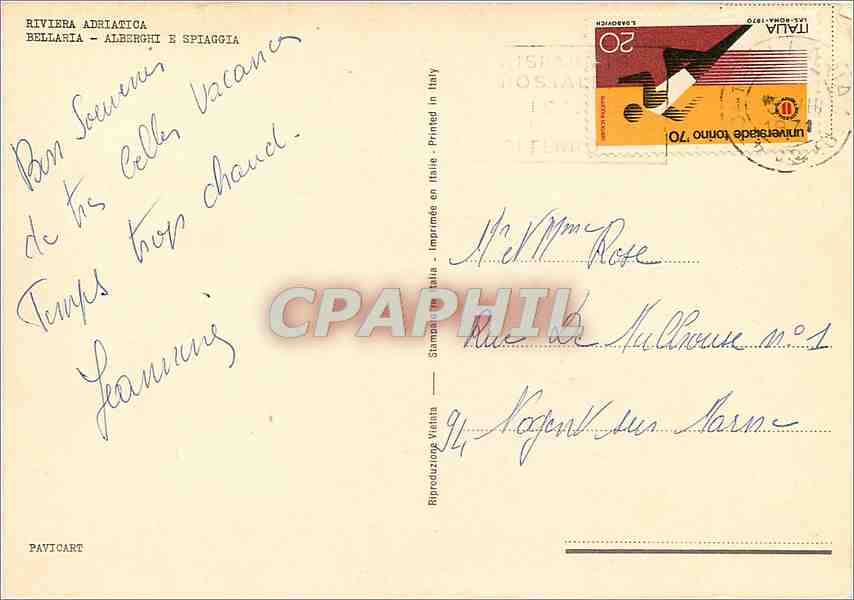 RIVIERA ADRIATICA
BELLARIA - ALBERGHI E SPIAGGIA
Bon Souvenir
de tres belles Vacances
Temps trop chaud.
Jeannine
PAVICART
Riproduzione Vietata — Stampato in Italia - Imprimée en Italie - Printed in Italy
ITALIA
20
I.P.S.-ROMA-1970
S.DABOVICH
universiade torino '70
Mr et Mme Rose
Rue De Mulhouse n° 1
94 Nogent sur Marne
CPAPHIL